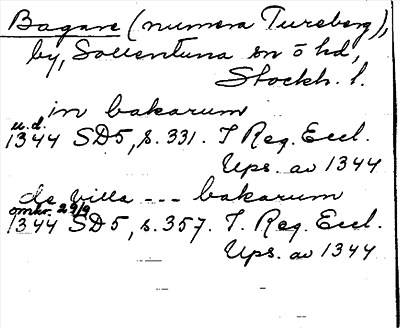 Bagare (numera Tureberg),
by, Sollentuna sn o hd,
Stockh. l.
in bakarum
u. d.
1344 SD5, s. 331. T Reg. Eccl.
Ups. av 1344
de villa --- bakarum
omkr. 29/9
1344 SD5, s. 357. T. Reg. Eccl.
Ups. av 1344